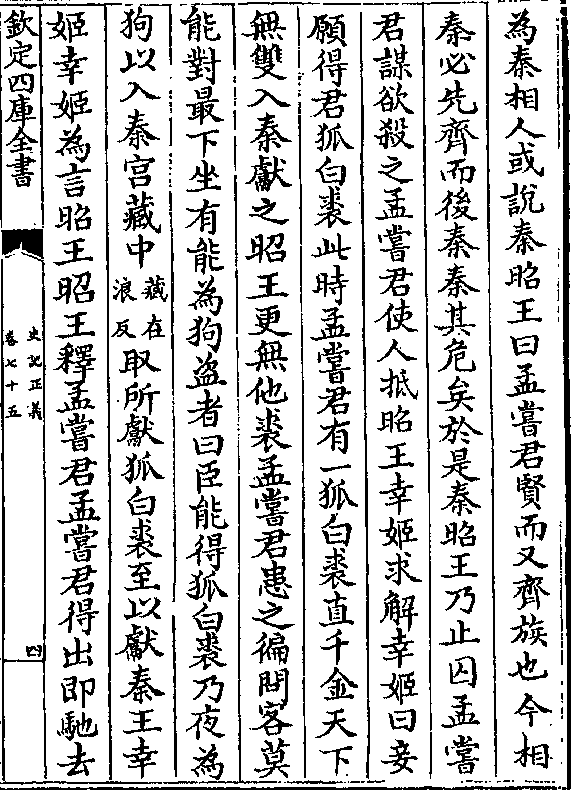 為秦相人或說秦昭王曰孟嘗君賢而又齊族也今相
秦必先齊而後秦秦其危矣於是秦昭王乃止囚孟嘗
君謀欲殺之孟嘗君使人抵昭王幸姬求解幸姬曰妾
願得君狐白裘此時孟嘗君有一狐白裘直千金天下
無雙入秦獻之昭王更無他裘孟嘗君患之徧問客莫
能對最下坐有能為狗盗者曰臣能得狐白裘乃夜為
狗以入秦宫藏中藏在浪反取所獻狐白裘至以獻秦王幸
姬幸姬為言昭王昭王釋孟嘗君孟嘗君得出即馳去
欽定四庫全書
史記正義
卷七十五
四